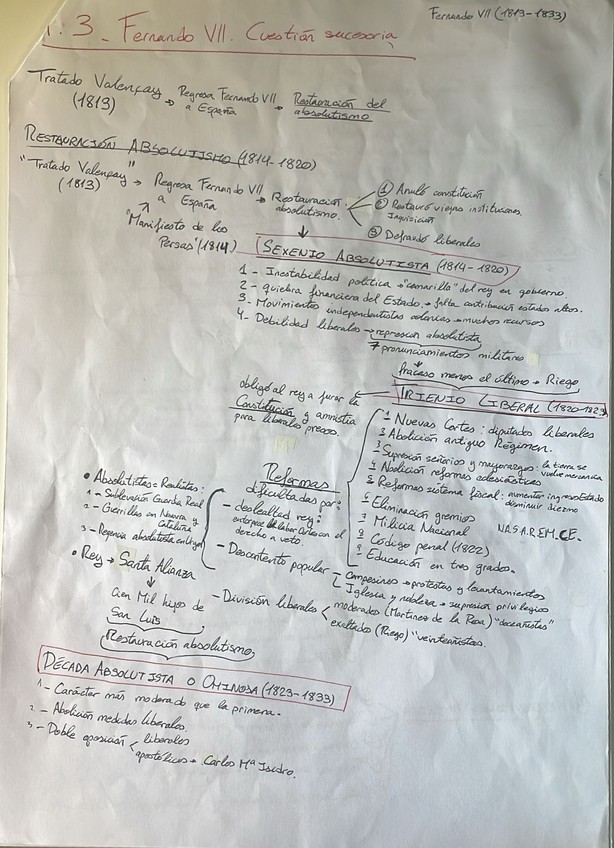 Fernando VII (1813-1833)
1.3_ Fernando VII. Cuestión sucesoria
Tratado Valençay (1813) → Regresa Fernando VII a España → Restauración del absolutismo
RESTAURACIÓN ABSOLUTISMO (1814-1820)
"Tratado Valençay" (1813) → Regresa Fernando VII a España → Restauración absolutismo.
① Anuló constitución
② Restauró viejas instituciones. Inquisición
③ Defraudó liberales
"Manifiesto de los Persas" (1814)
SEXENIO ABSOLUTISTA (1814-1820)
1 - Inestabilidad política → "camarilla" del rey en gobierno.
2 - quiebra financiera del Estado → falta contribución estados altos.
3 - Movimientos independentistas colonias → muchos recursos
4 - Debilidad liberales → represión absolutista
7 pronunciamientos militares
fracaso menos el último → Riego
TRIENIO LIBERAL (1820-1823
obligó al rey a jurar la Constitución y amnistía para liberales presos.
1 Nuevas Cortes: diputados liberales
2 Abolición antiguo Régimen.
3 Supresión señoríos y mayorazgos: la tierra se vuelve mercancía
4 Abolición reformas eclesiásticas
5 Reformas sistema fiscal: aumentar ingresos Estado disminuir diezmo
6 Eliminación gremios
7 Milicia Nacional
8 Código penal (1822)
9 Educación en tres grados.
N.A.S.A.R.E.M.C.E.
Reformas
dificultadas por:
- deslealtad rey:
entorpece labor Cortes con el derecho a veto.
- Descontento popular
campesinos → protestas y levantamientos
Iglesia y nobleza → supresión privilegios
- División liberales
moderados (Martínez de la Rosa) "doceañistas"
exaltados (Riego) "veinteañistas.
• Absolutistas = Realistas:
1 - Sublevación Guardia Real
2 - Guerrillas en Navarra y Cataluña
3 - Regencia absolutista
• Rey → Santa Alianza
Cien Mil hijos de San Luis
Restauración absolutismo,
DÉCADA ABSOLUTISTA O OMINOSA (1823-1833)
1 - Carácter más moderado que la primera.
2 - Abolición medidas liberales.
3 - Doble oposición
liberales
apostólicos → Carlos Mª Isidro.